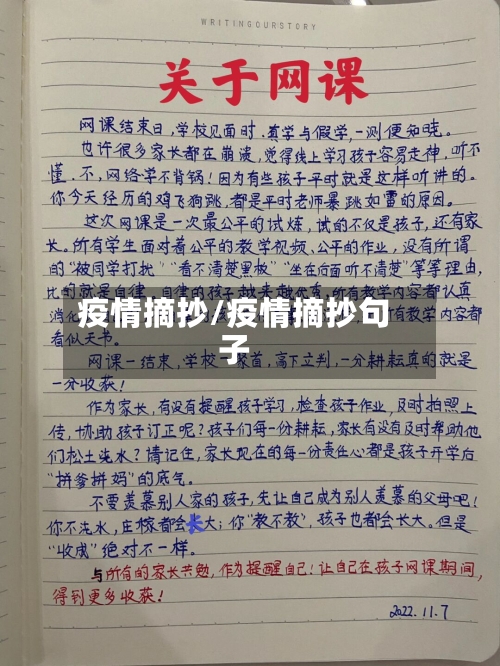 WRITINGOURSTORY
关于网课
网课结束日,学校见面时.真学与假学,一测便知晓。
也许很多家长都在崩溃,觉得线上学习孩子容易走神,听不
懂.不,网络学不背锅!因为有些孩子平时就是这样听讲的。
你今天经历的鸡飞狗跳,都是平时老师暴跳如雷的原因。
这次网课是一次最公平的试炼,试的不仅是孩子,还有家
长。所有学生面对着公平的教学视频、公平的作业,没有所谓
的“被同学打扰”“看不清楚黑板”“坐在后面听不清楚”等等理由,
比的就是自律.自律的孩子越来越优秀,所有教学内容都认真
消化
疫情摘抄/疫情摘抄句
子
有教学内容都
看似天书。
网课一结束,学校一聚首,高下立判,一分耕耘真的就是
一分收获!
作为家长,有没有提醒孩子学习,检查孩子作业,及时拍照上
传,协助孩子订正呢?孩子们每一份耕耘,家长有没有及时帮助他
们松土浇水?请记住,家长现在的每一份责任心都是孩子开学后
“拼爹拼妈”的底气。
不要羡慕别人家的孩子,先让自己成为别人羡慕的父母吧!
你不浇水,庄稼都会长大;你“教不教”,孩子也都会长大。但是
“收成”绝对不一样。
与所有的家长共勉,作为提醒自己!让自己在孩子网课期间,
得到更多收获!
2022.11.7